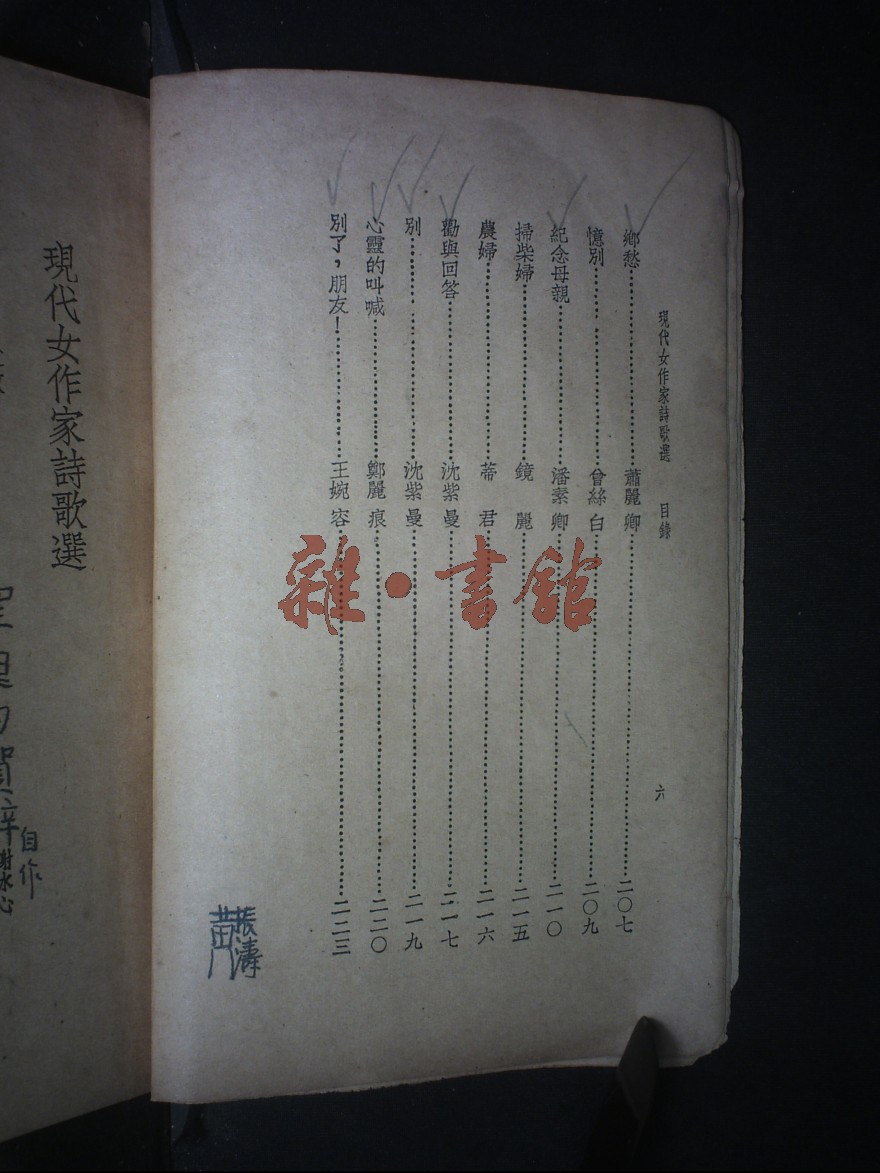 現代女作家詩歌選　目錄　六
鄉愁……蕭麗卿……二〇七
憶別……曾絲白……二〇九
紀念母親……潘素卿……二一〇
掃柴婦……鏡麗……二一五
農婦……蒂君……二一六
勸與回答……沈紫曼……二一七
別……沈紫曼……二一九
心靈的叫喊……鄭麗痕……二二〇
別了，朋友！……王婉容……二二三
振濤
雜·書館
現代女作家詩歌選
的賀辭
自作
謝冰心